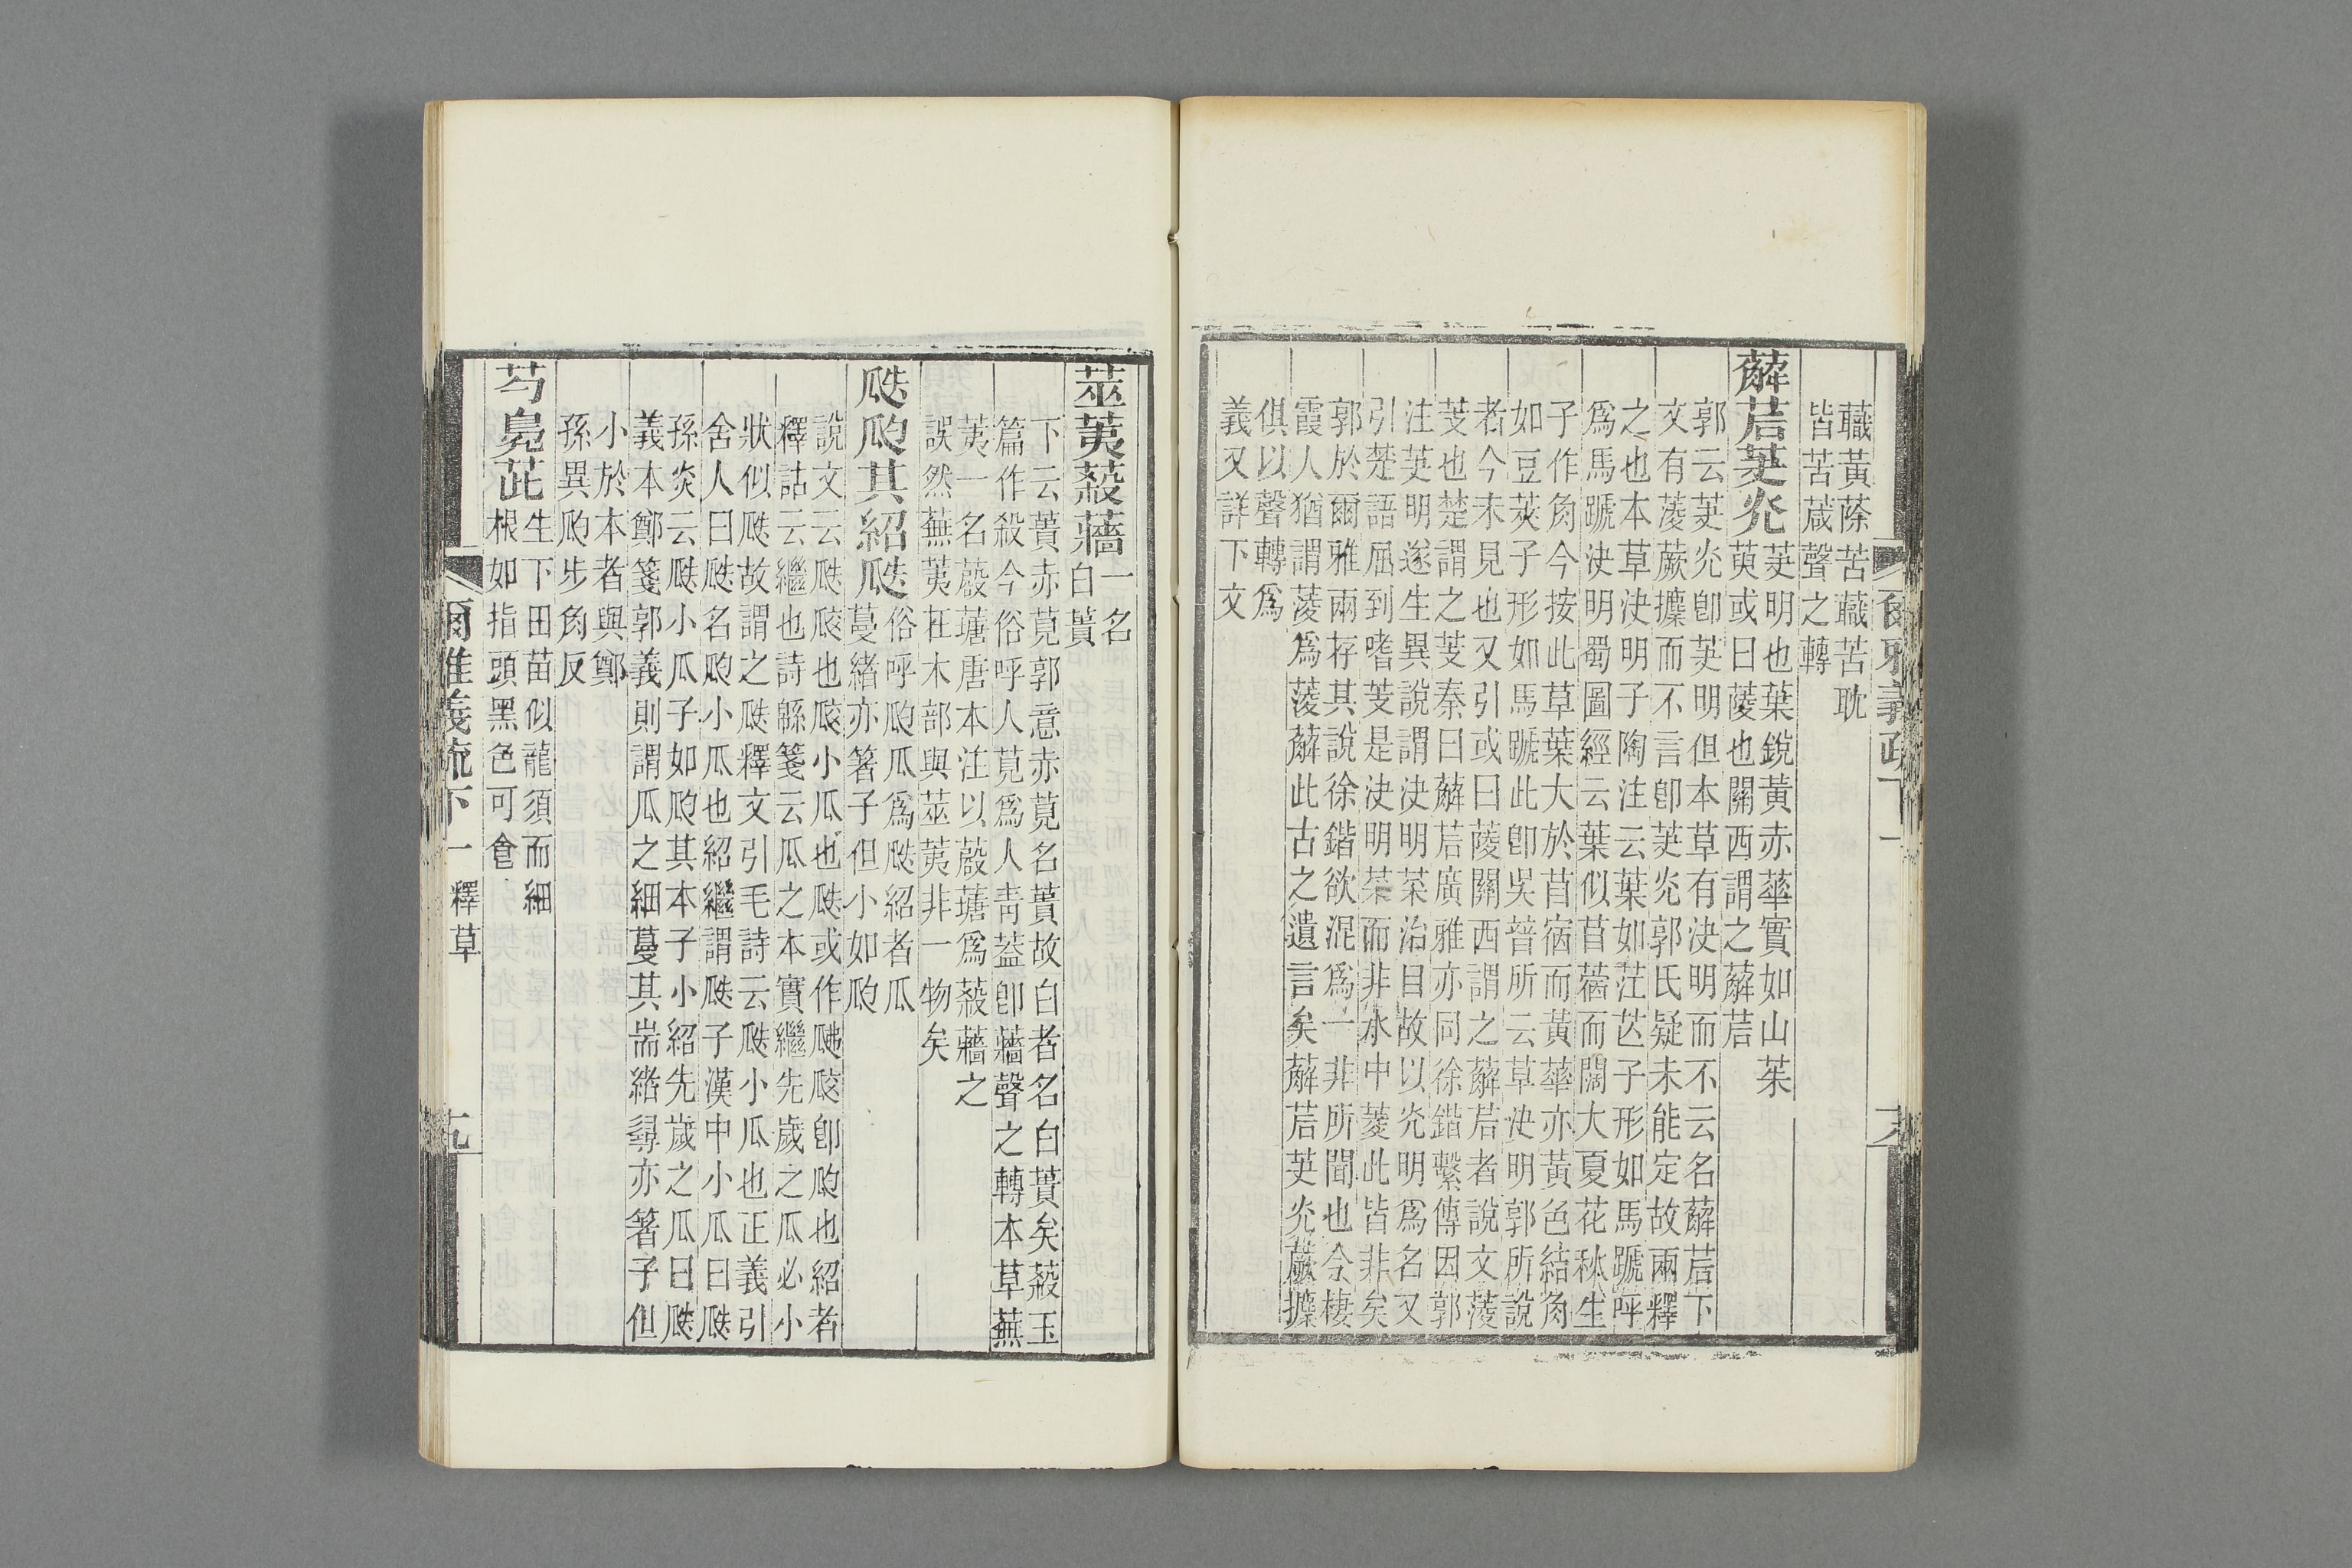 爾雅義疏下一
蘵黃蒢苦蘵苦耽
皆苦葴聲之轉
薢茩芵茪
芵明也葉銳黃赤華實如山茱
萸或曰蔆也關西謂之薢茩
郭云芵茪卽芵明但本草有決明而不云名薢茩下
文有蔆蕨攗而不言卽芵茪郭氏疑未能定故兩釋
之也本草決明子陶注云葉如茳芏子形如馬蹏呼
爲馬蹏決明蜀圖經云葉似苜蓿而闊大夏花秋生
子作角今按此草葉大於苜蓿而黃華亦黃色結角
如豆莢子形如馬蹏此卽吳普所云草決明郭所說
者今未見也又引或曰蔆關西謂之薢茩者說文蔆
芰也楚謂之芰秦曰薢茩廣雅亦同徐鍇繫傳因郭
注芵明遂生異說謂決明菜治目故以茪明爲名又
引楚語屈到嗜芰是決明菜而非水中菱此皆非矣
郭於爾雅兩存其說徐鍇欲混爲一非所聞也今棲
霞人猶謂蔆爲蔆薢此古之遺言矣薢茩芵茪蕨攗
俱以聲轉爲
義又詳下文
莁荑蔱蘠
一名
白蕢
下云蕢赤莧郭意赤莧名蕢故白者名白蕢矣蔱玉
篇作殺今俗呼人莧爲人靑葢卽蘠聲之轉本草蕪
荑一名蕵蓎唐本注以蕵蓎爲蔱蘠之
誤然蕪荑在木部與莁荑非一物矣
瓞瓝其紹瓞
俗呼瓝瓜爲瓞紹者瓜
蔓緒亦著子但小如瓝
說文云瓞㼐也㼐小瓜也瓞或作𤬏㼐卽瓝也紹者
釋詁云繼也詩緜箋云瓜之本實繼先歲之瓜必小
狀似瓞故謂之瓞釋文引毛詩云瓞小瓜也正義引
舍人曰瓞名瓝小瓜也紹繼謂瓞子漢中小瓜曰瓞
孫炎云瓞小瓜子如瓝其本子小紹先歲之瓜曰瓞
義本鄭箋郭義則謂瓜之細蔓其耑緒尋亦著子但
小於本者與鄭
孫異瓝步角反
芍鳧茈
生下田苗似龍須而細
根如指頭黑色可食
爾雅義疏下一
釋草